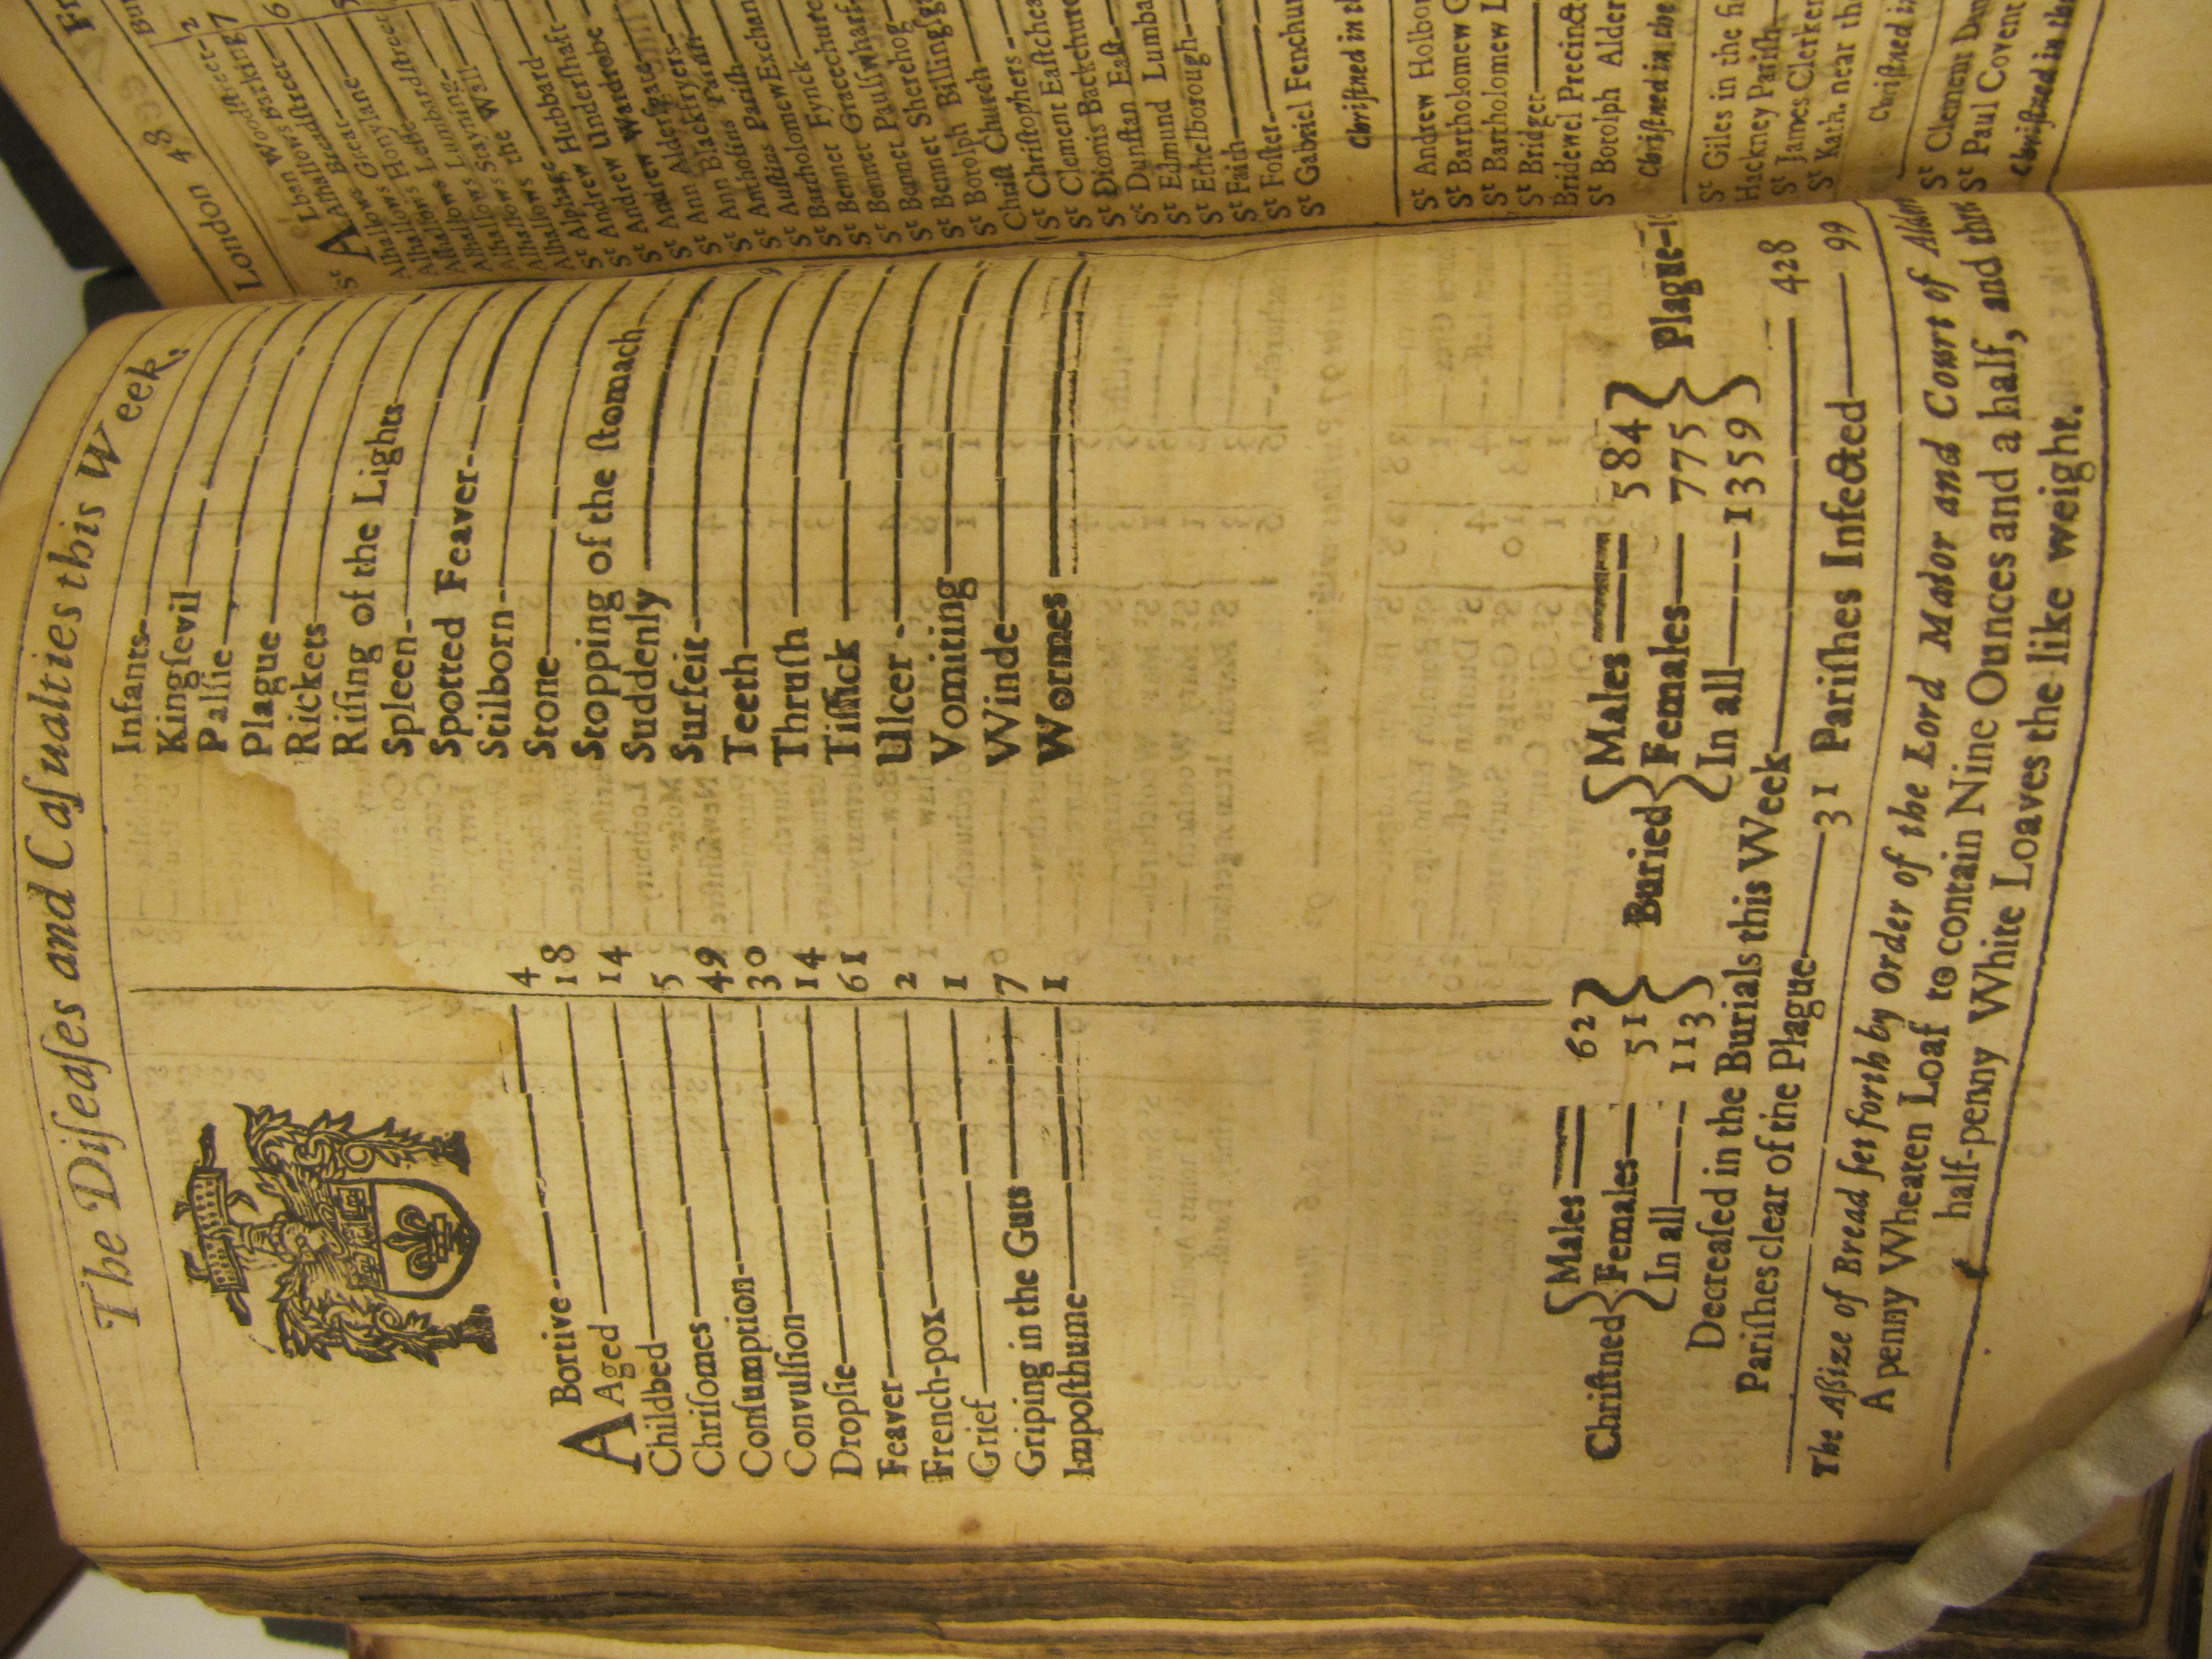 The Diſeaſes and Caſualties this Week.
ABortive 4
Aged 18
Childbed 14
Chriſomes 5
Conſumption 49
Convulſion 30
Dropſie 14
Feaver 61
French-pox 2
Grief 1
Griping in the Guts 7
Impoſthume 1
Infants
Kingſevil
Palſie
Plague
Rickets
Riſing of the Lights
Spleen
Spotted Feaver
Stilborn
Stone
Stopping of the ſtomach
Suddenly
Surfeit
Teeth
Thruſh
Tiſſick
Ulcer
Vomiting
Winde
Wormes
Chriſtned { Males 62 Females 51 In all 113 }
Buried { Males 584 Females 775 In all 1359 } Plague
Decreaſed in the Burials this Week 428
Pariſhes clear of the Plague 31 Pariſhes Infected 99
The Aſſize of Bread ſet forth by Order of the Lord Maior and Court of
A penny Wheaten Loaf to contain Nine Ounces and a half, and three
half-penny White Loaves the like weight.
London 48
St ALban Woodſtreet 2
Alhallows Barking 7
Alhallows Breadſtreet 6
Alhallows Great
Alhallows Honylane
Alhallows Leſſe
Alhallows Lumbardſtreet
Alhallows Stayning
Alhallows the Wall
St Alphage
St Andrew Hubbard
St Andrew Underſhaft
St Andrew Wardrobe
St Ann Alderſgate
St Ann Blackfryers
St Antholins Pariſh
St Auſtins Pariſh
St Bartholomew Exchan
St Bennet Fynck
St Bennet Gracechurch
St Bennet Paulſwharf
St Bennet Sherehog
St Botolph Billingſga
Chriſt Church
St Chriſtophers
St Clement Eaſtchea
St Dionis Backchurch
St Dunſtan Eaſt
St Edmund Lumba
St Ethelborough
St Faith
St Foſter
St Gabriel Fenchur
Chriſtned in th
St Andrew Holbor
St Bartholomew G
St Bartholomew L
St Bridget
Bridewel Precinct
St Botolph Alder
Chriſtned in the
St Giles in the fie
Hackney Pariſh
St James Clerken
St Kath. near the
Chriſtned in
St Clement Dan
St Paul Covent
Chriſtned in the